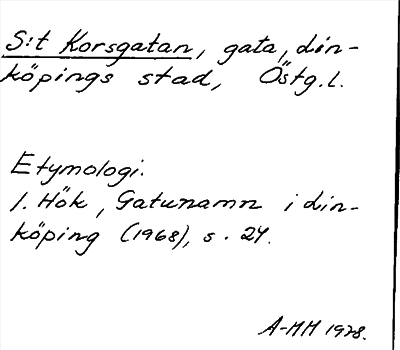 S:t Korsgatan, gata, Lin-
köpings stad, Östg.l.
Etymologi.
I. Hök, Gatunamn i Lin-
köping (1968), s. 24.
A-MM 1978.